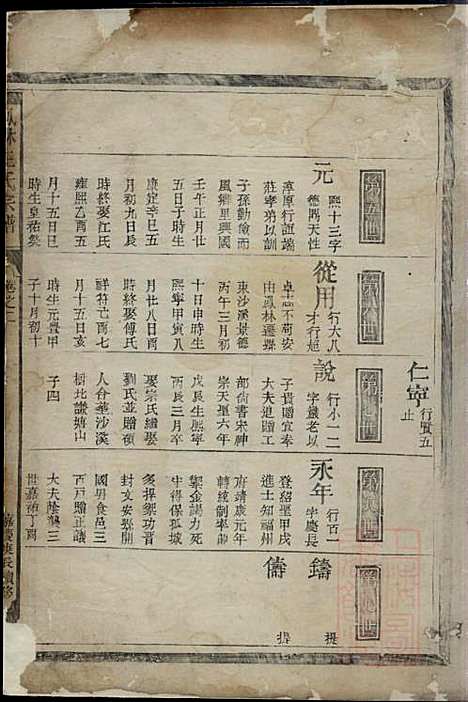 第五世
元 熙十三字
德鄰天性
淳原行誼端
莊寧弟以訓
子孫勤儉而
風鄉里興國
壬午正月廿
五日子時生
康定辛巳五
月初九日辰
時終娶江氏
雍熙乙酉五
月十五日巳
時生皇祐癸
第六世
仁寧 行貿五
止
從用 行大八
才行超
卓不苟安
由鳳林遷蝶
東沙溪景德
丙午三月初
十日申時生
熙寧甲寅八
月廿八日辰
時終娶傅氏
祥符酉七
月十五日亥
時生元豐甲
子十月初十
第七世
說 行小一二
字鑑老以
子貴贈宣奉
大夫追贈工
部尚書宋神
宗天聖六年
戊辰生熙寧
丙辰三月卒
娶宗氏繼娶
劉氏並贈碩
人合葬沙溪
樹北讖塘山
子四
第八世
永年 行百一
字慶長
登紹聖甲戌
進士知福州
府靖康元年
轉統制率師
禦金竭力死
牛得保孤城
多捍禦功晉
封文安縣開
國男食邑三
百戶贈正議
大夫蔭襲三
世嘉禧丁酉
第九世
鑄 提
儔 提
鳳林王氏宗譜
卷之二
嘉慶庚辰續修